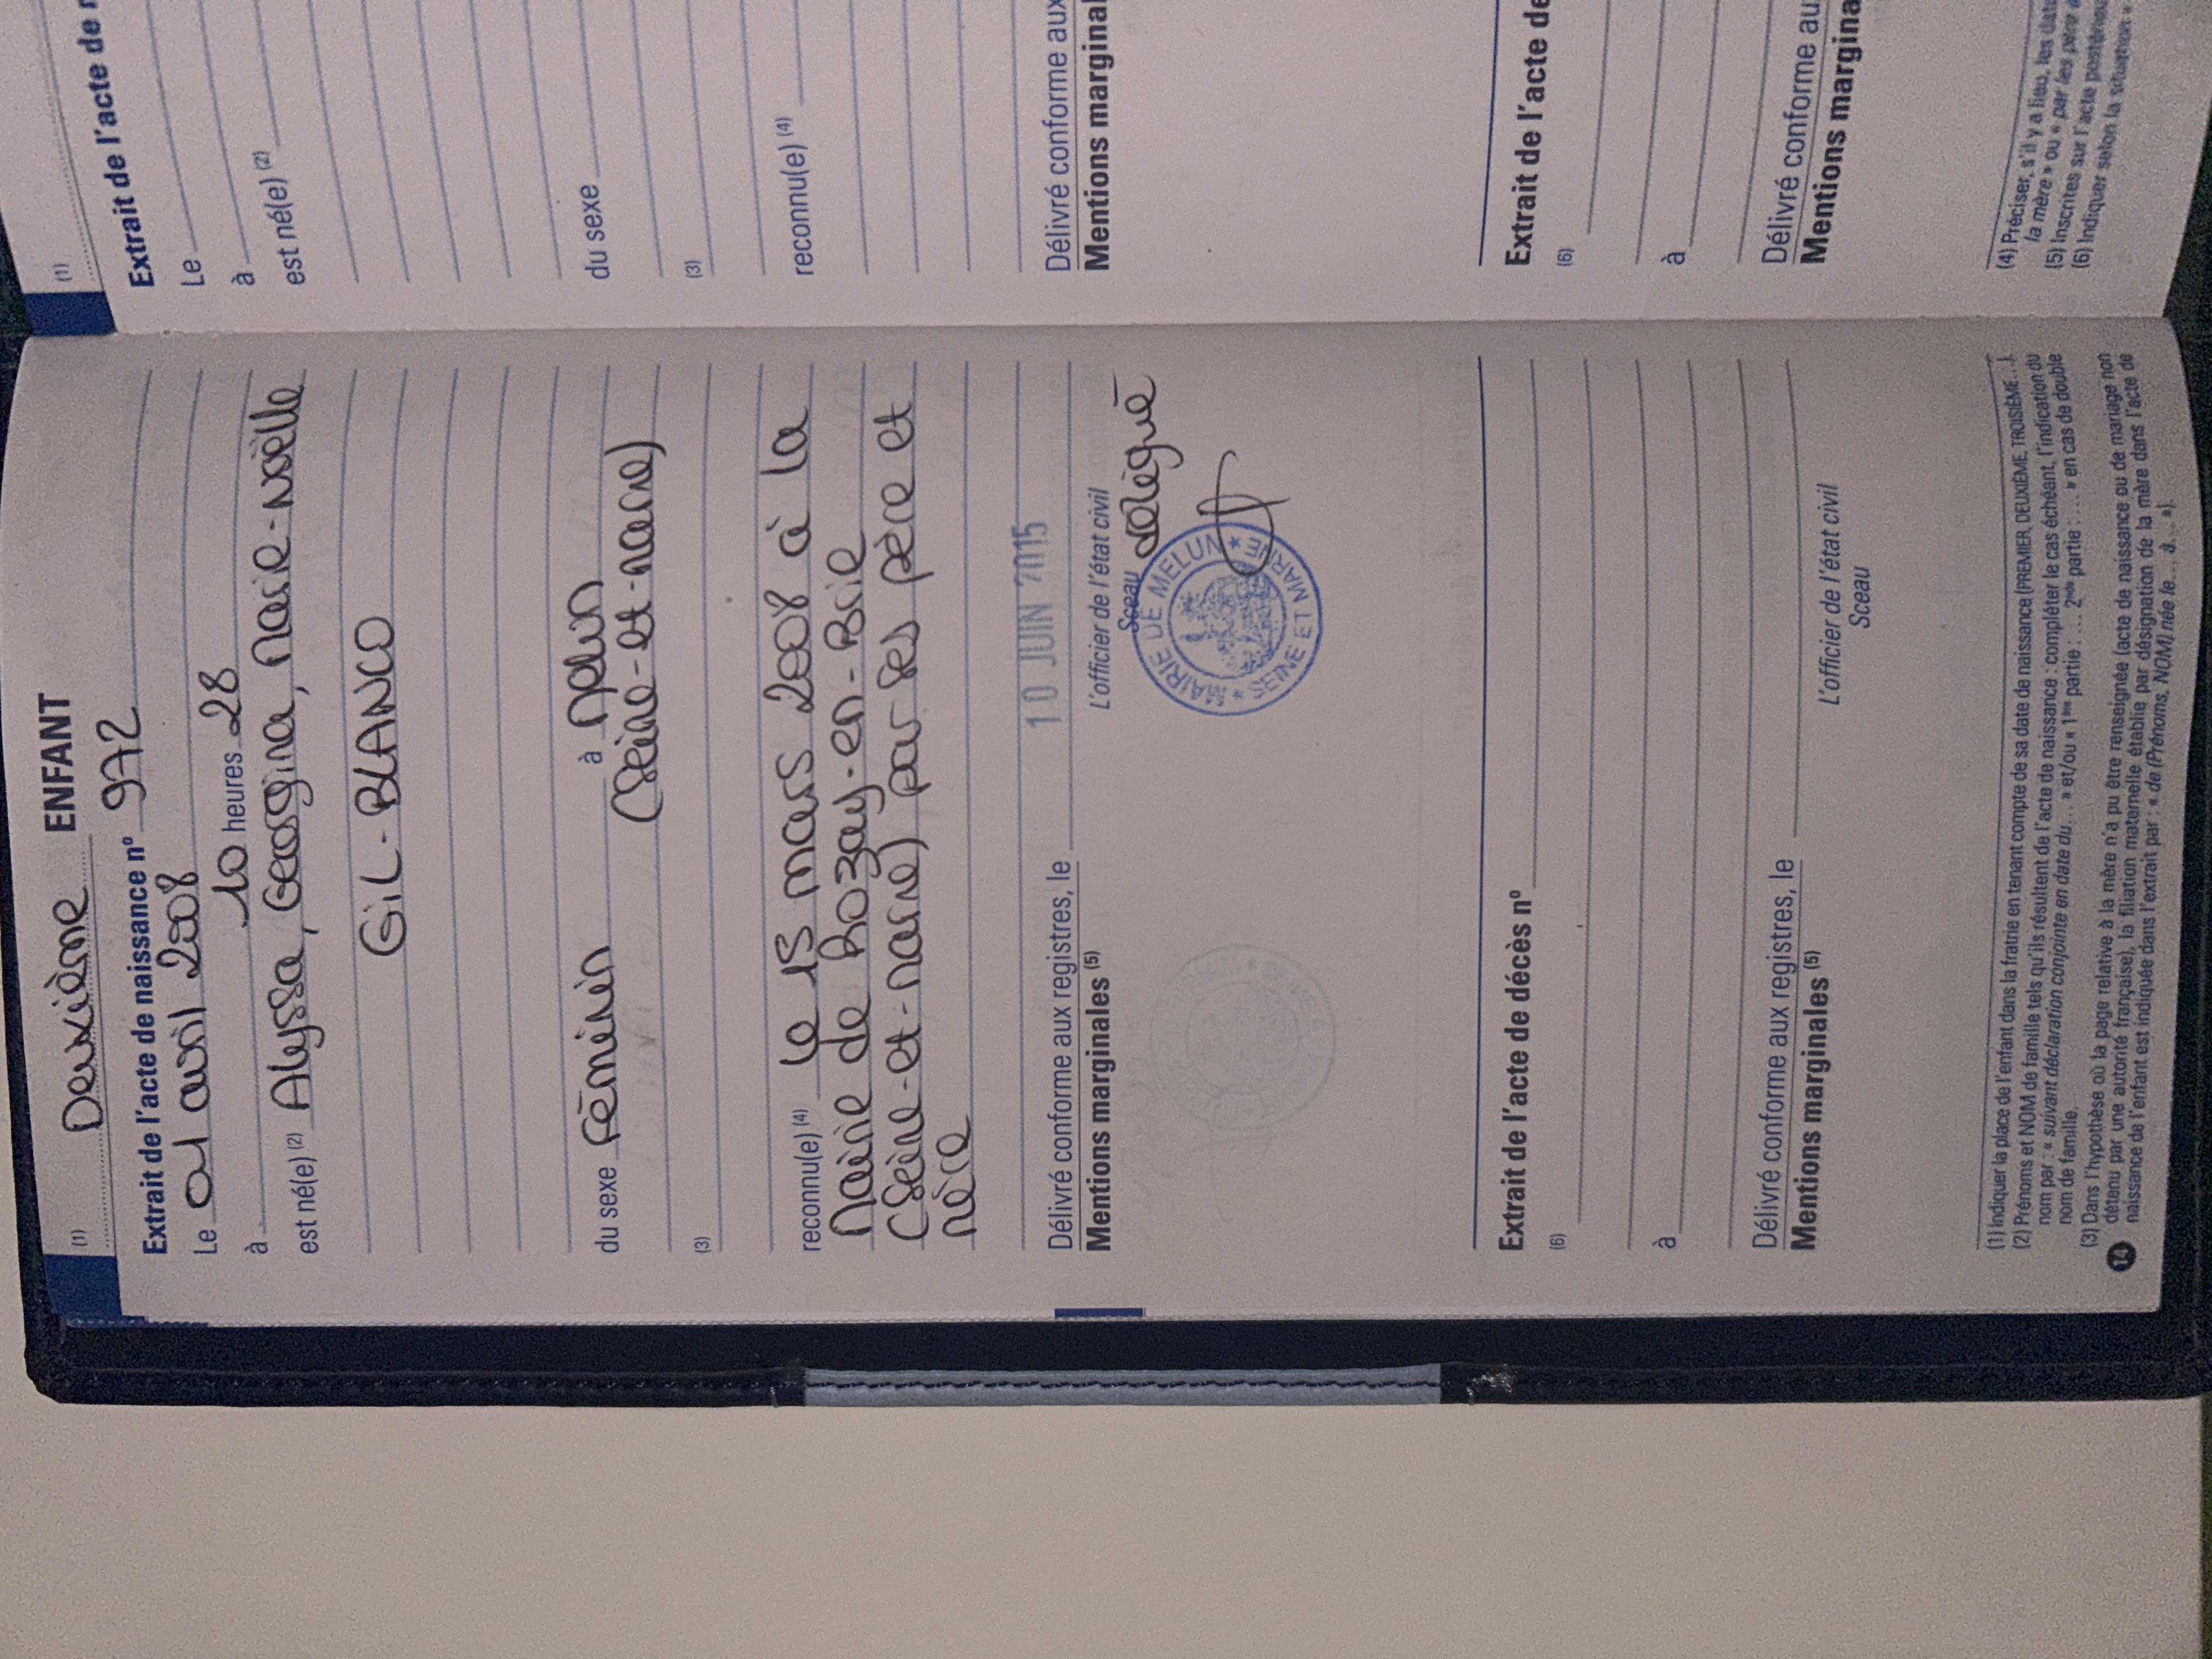 (1) Deuxième ENFANT
Extrait de l'acte de naissance n° 972
Le 01 avril 2008
à 10 heures 28
est né(e) (2) Alyssa, Georgina, Marie-Noëlle
GiL-BLANCO
du sexe Féminin à Melun
(Seine-et-Marne)
(3)
reconnu(e) (4) le 15 mars 2008 à la
Mairie de Rozay-en-Brie
(Seine-et-Marne) par ses père et
mère
Délivré conforme aux registres, le 10 JUIN 2015
Mentions marginales (5) L'officier de l'état civil
Sceau délégué
MAIRIE DE MELUN
* SEINE ET MARNE *
Extrait de l'acte de décès n°
(6)
à
Délivré conforme aux registres, le
Mentions marginales (5) L'officier de l'état civil
Sceau
(1) Indiquer la place de l'enfant dans la fratrie en tenant compte de sa date de naissance (PREMIER, DEUXIÈME, TROISIÈME...).
(2) Prénoms et NOM de famille tels qu'ils résultent de l'acte de naissance : compléter le cas échéant, l'indication du
nom par : « suivant déclaration conjointe en date du... » et/ou « 1ère partie : ... 2nde partie : ... » en cas de double
nom de famille.
(3) Dans l'hypothèse où la page relative à la mère n'a pu être renseignée (acte de naissance ou de mariage non
détenu par une autorité française), la filiation maternelle établie par désignation de la mère dans l'acte de
naissance de l'enfant est indiquée dans l'extrait par : « de (Prénoms, NOM) née le... à... »).
14
(1)
Extrait de l'acte de
Le
à
est né(e) (2)
du sexe
(3)
reconnu(e) (4)
Délivré conforme aux
Mentions marginal
Extrait de l'acte de
(6)
à
Délivré conforme au
Mentions margina
(4) Préciser, s'il y a lieu, les
la mère » ou « par les père
(5) Inscrites sur l'acte
(6) Indiquer selon la situation «